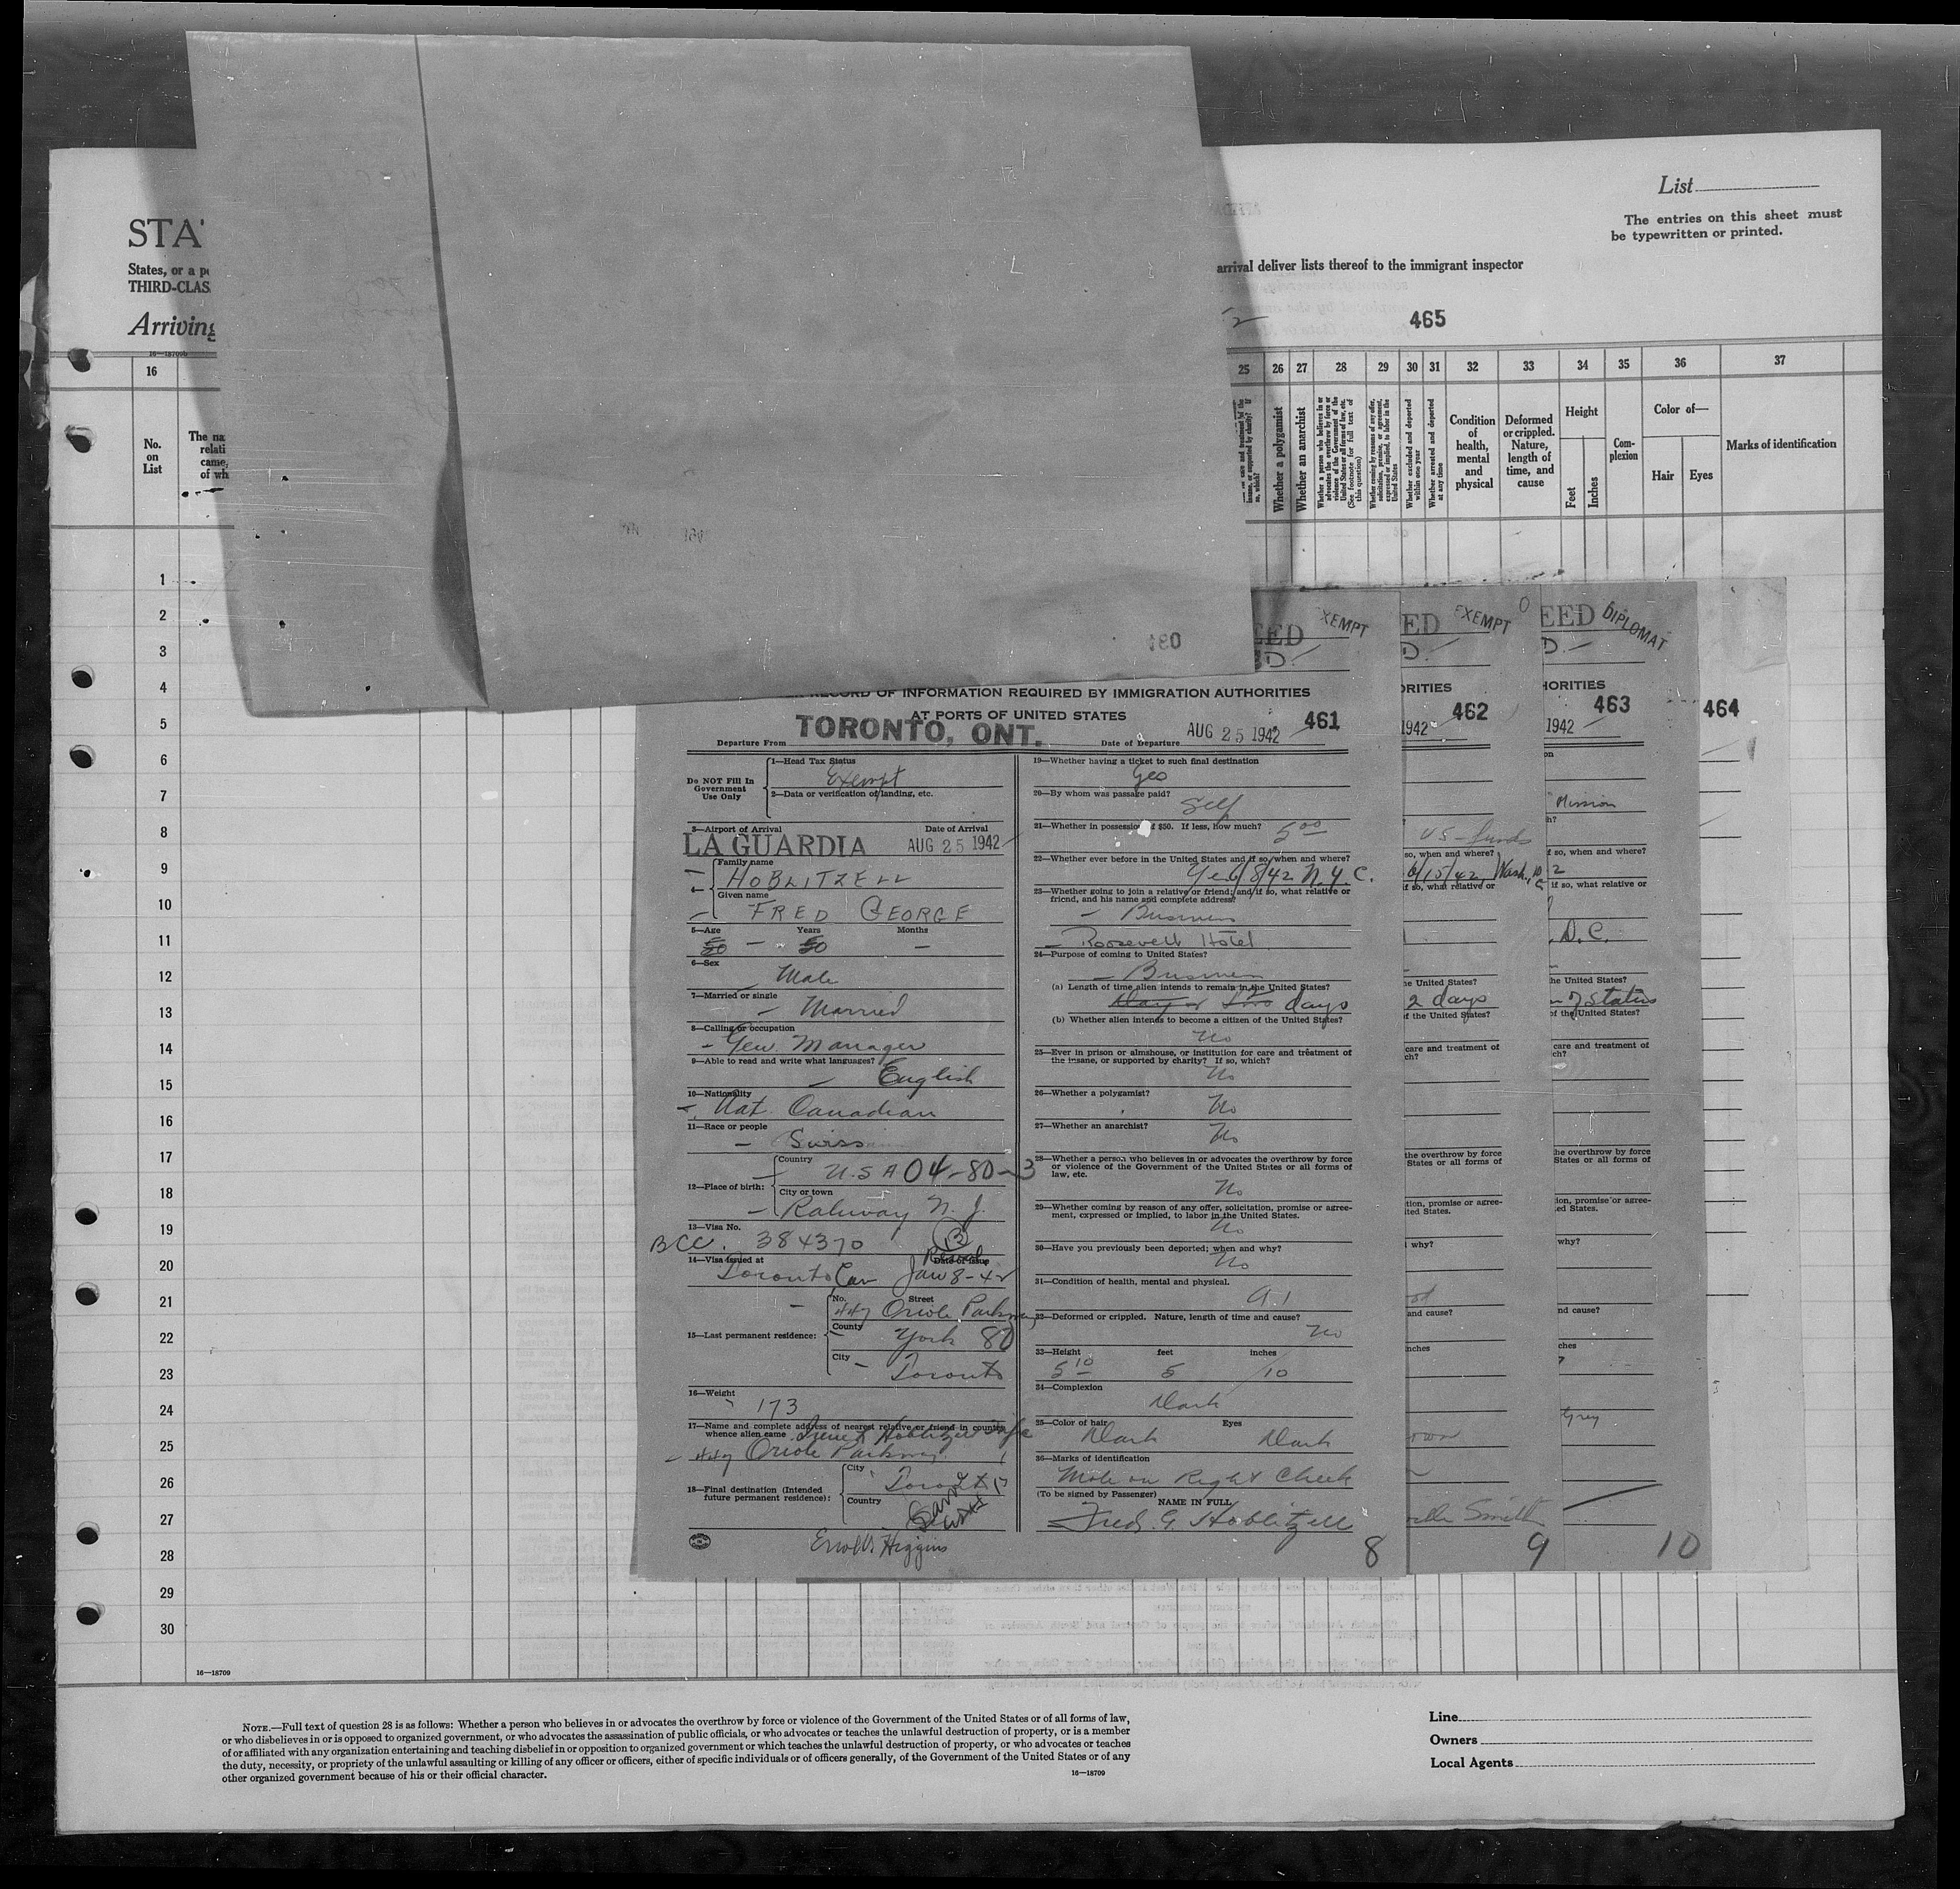 List
The entries on this sheet must
be typewritten or printed.
STA
States, or a
THIRD-CLAS
arrival deliver lists thereof to the immigrant inspector
Arriving
465
16—18709b
16
25 26 27 28 29 30 31 32 33 34 35 36 37
No.
on
List
The na
relati
came,
of wh
Whether a polygamist
Whether an anarchist
Condition
of
health,
mental
and
physical
Deformed
or crippled.
Nature,
length of
time, and
cause
Height
Feet
Inches
Com-
plexion
Color of—
Hair
Eyes
Marks of identification
1
2
3
4
5
6
7
8
9
10
11
12
13
14
15
16
17
18
19
20
21
22
23
24
25
26
27
28
29
30
16—18709
RECORD OF INFORMATION REQUIRED BY IMMIGRATION AUTHORITIES
AT PORTS OF UNITED STATES
461
Departure From TORONTO, ONT.
Date of Departure AUG 25 1942
Do NOT Fill In
Government
Use Only
1—Head Tax Status
Exempt
2—Data or verification of landing, etc.
3—Airport of Arrival
Date of Arrival
LA GUARDIA AUG 25 1942
4—
Family name
HOBLITZELL
Given name
FRED GEORGE
5—Age Years Months
50 — 50 —
6—Sex
Male
7—Married or single
Married
8—Calling or occupation
Gen. Manager
9—Able to read and write what languages?
English
10—Nationality
Nat. Canadian
11—Race or people
Swiss
12—Place of birth:
Country
U.S.A 04-80-3
City or town
Rahway N. J.
13—Visa No.
BCC. 384370
14—Visa issued at
Date of Issue
Toronto Can Jan 8-42
15—Last permanent residence:
No. Street
447 Oriole Parkway
County
York 80
City
Toronto
16—Weight
173
17—Name and complete address of nearest relative or friend in country
whence alien came
Hoblitzell Wife
447 Oriole Parkway
18—Final destination (Intended
future permanent residence):
City
Country
Errol V. Higgins
19—Whether having a ticket to such final destination
Yes
20—By whom was passage paid?
Self
21—Whether in possession of $50. If less, how much?
500
22—Whether ever before in the United States and if so, when and where?
Yes 6/8/42 N.Y.C.
23—Whether going to join a relative or friend; and if so, what relative or
friend, and his name and complete address?
— Business
— Roosevelt Hotel
24—Purpose of coming to United States?
— Business
(a) Length of time alien intends to remain in the United States?
Day or two days
(b) Whether alien intends to become a citizen of the United States?
No
25—Ever in prison or almshouse, or institution for care and treatment of
the insane, or supported by charity? If so, which?
No
26—Whether a polygamist?
No
27—Whether an anarchist?
No
28—Whether a person who believes in or advocates the overthrow by force
or violence of the Government of the United States or all forms of
law, etc.
No
29—Whether coming by reason of any offer, solicitation, promise or agree-
ment, expressed or implied, to labor in the United States.
No
30—Have you previously been deported; when and why?
No
31—Condition of health, mental and physical.
A.1
32—Deformed or crippled. Nature, length of time and cause?
No
33—Height feet inches
5 10 5 10
34—Complexion
Dark
35—Color of hair Eyes
Dark Dark
36—Marks of identification
Mole on Right Cheek
(To be signed by Passenger)
NAME IN FULL
Fred. G. Hoblitzell
8
XEMPT
ED EXEMPT
ORITIES
1942 462
US-funds
so, when and where?
6/15/42 Wash. DC
if so, what relative or
he United States?
2 days
of the United States?
care and treatment of
ch?
the overthrow by force
States or all forms of
tion, promise or agree-
ited States.
why?
and cause?
nches
own
Smith
9
EED DIPLOMAT
HORITIES
463
1942
on
Mission
h?
f so, when and where?
2
if so, what relative or
, D.C.
he United States?
of Status
of the United States?
care and treatment of
ch?
he overthrow by force
States or all forms of
ion, promise or agree-
ed States.
why?
nd cause?
ches
Grey
10
464
NOTE.—Full text of question 28 is as follows: Whether a person who believes in or advocates the overthrow by force or violence of the Government of the United States or of all forms of law,
or who disbelieves in or is opposed to organized government, or who advocates the assassination of public officials, or who advocates or teaches the unlawful destruction of property, or is a member
of or affiliated with any organization entertaining and teaching disbelief in or opposition to organized government or which teaches the unlawful destruction of property, or who advocates or teaches
the duty, necessity, or propriety of the unlawful assaulting or killing of any officer or officers, either of specific individuals or of officers generally, of the Government of the United States or of any
other organized government because of his or their official character.
16—18709
Line
Owners
Local Agents